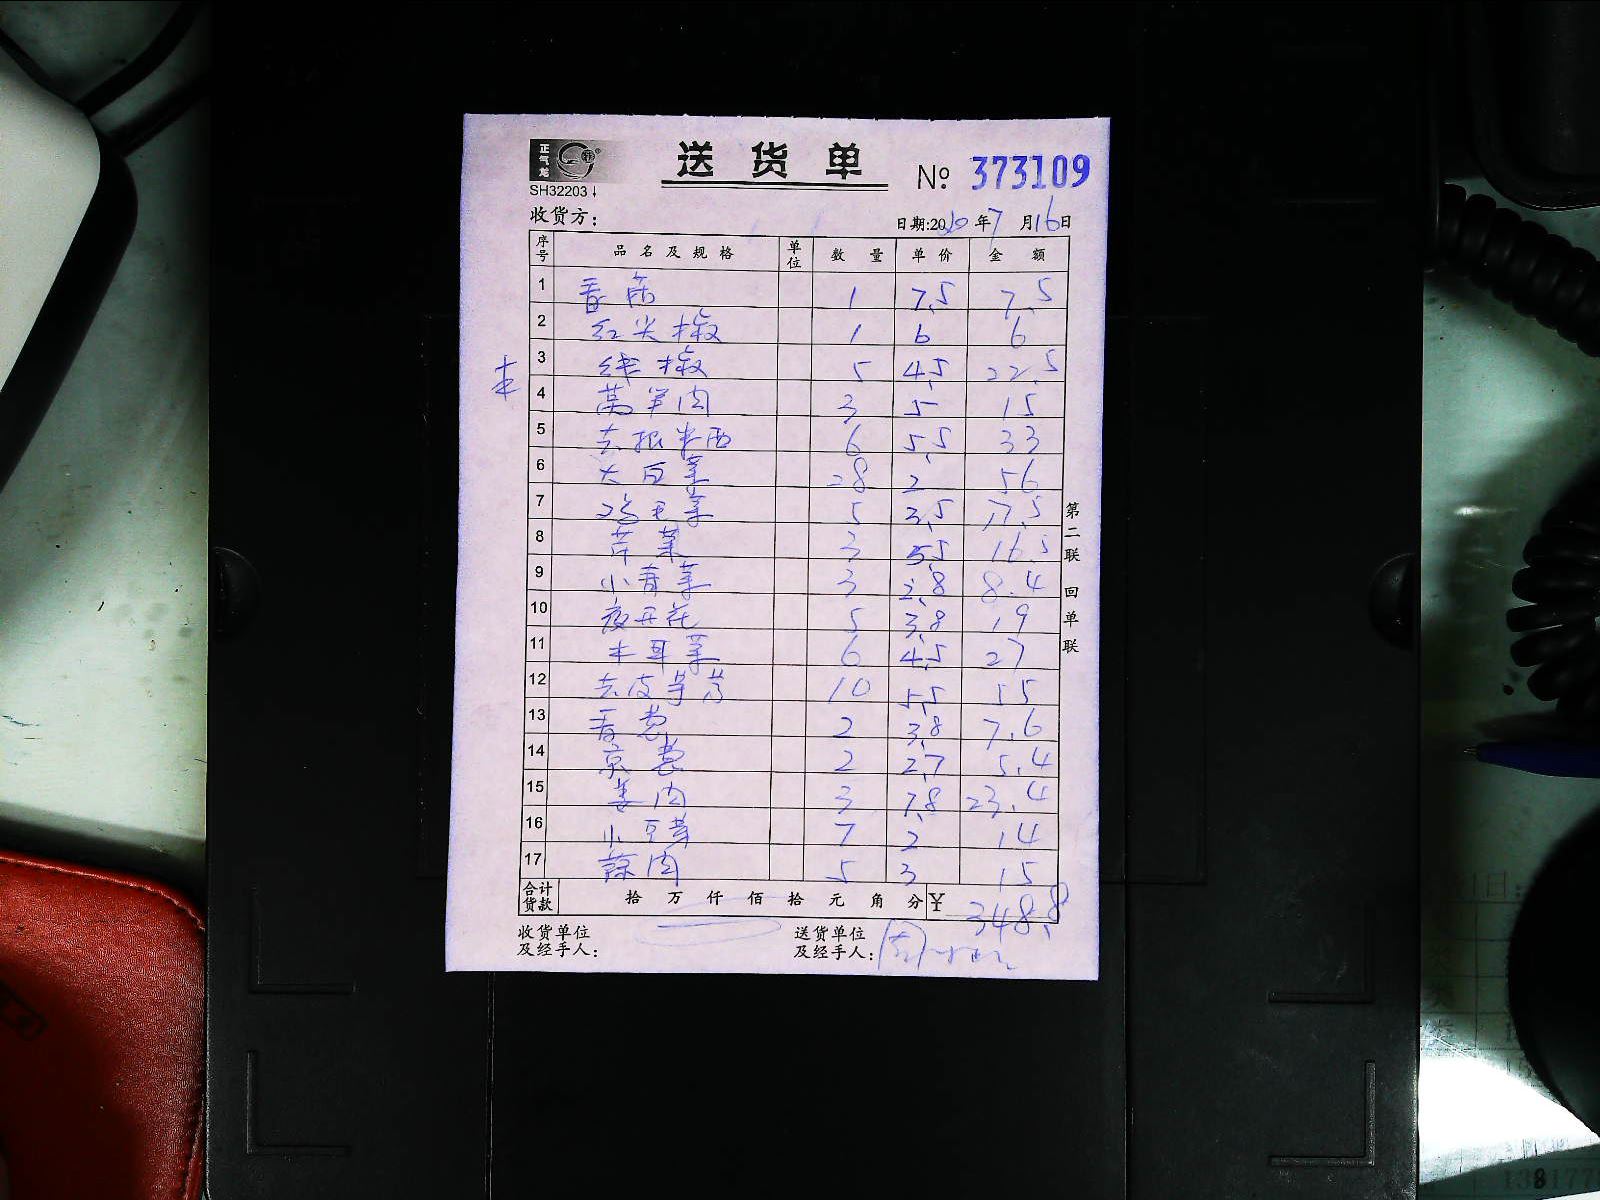 正气龙
SH32203
送货单
№ 373109
收货方:
日期:2020年7月16日
序号 品名及规格 单位 数量 单价 金额
1 香茄 1 7.5 7.5
2 红尖椒 1 6 6
3 线椒 5 4.5 22.5
4 莴笋肉 3 5 15
5 去根米西 6 5.5 33
6 大白菜 28 2 56
7 鸡毛菜 5 3.5 17.5
8 芹菜 3 5.5 16.5
9 小青菜 3 2.8 8.4
10 夜开花 5 3.8 19
11 木耳菜 6 4.5 27
12 去皮茡荠 10 5.5 55
13 香葱 2 3.8 7.6
14 京葱 2 2.7 5.4
15 姜肉 3 7.8 23.4
16 小豆芽 7 2 14
17 蒜肉 5 3 15
合计货款 拾 万 仟 佰 拾 元 角 分 ¥ 348.8
收货单位及经手人:
送货单位及经手人:
第二联 回单联